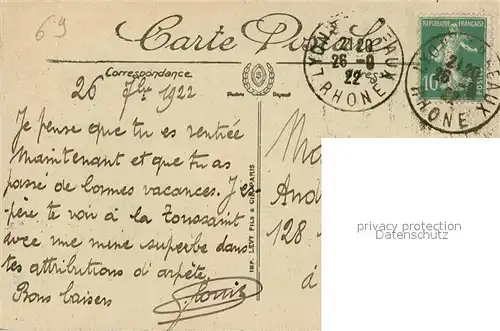 69
Carte Postale
Correspondance
26 7bre 1922
Je pense que tu es rentrée
maintenant et que tu as
passé de bonnes vacances. J'es-
père te voir à la Toussaint
avec une mine superbe dans
tes attributions d'arpète.
Bons baisers
21 20
26 - 9
22
RHONE
REPUBLIQUE FRANÇAISE
10
POSTES
21 20
RHONE
IMP. LEVY FILS & Cie PARIS
And
128 -
à
privacy protection
Datenschutz